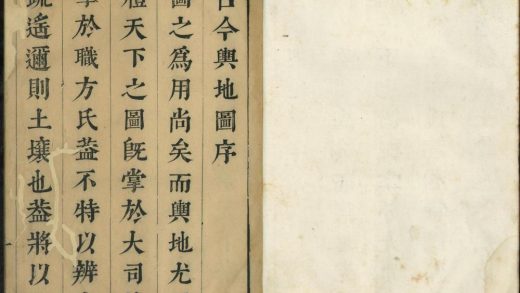 古今輿地圖序
圖之爲用尚矣而輿地尤
禮天下之圖旣掌於大司
掌於職方氏葢不特以辨
疏遙邇則土壤也葢將以